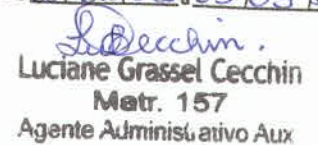 LCecchin.
Luciane Grassel Cecchin
Matr. 157
Agente Administrativo Aux